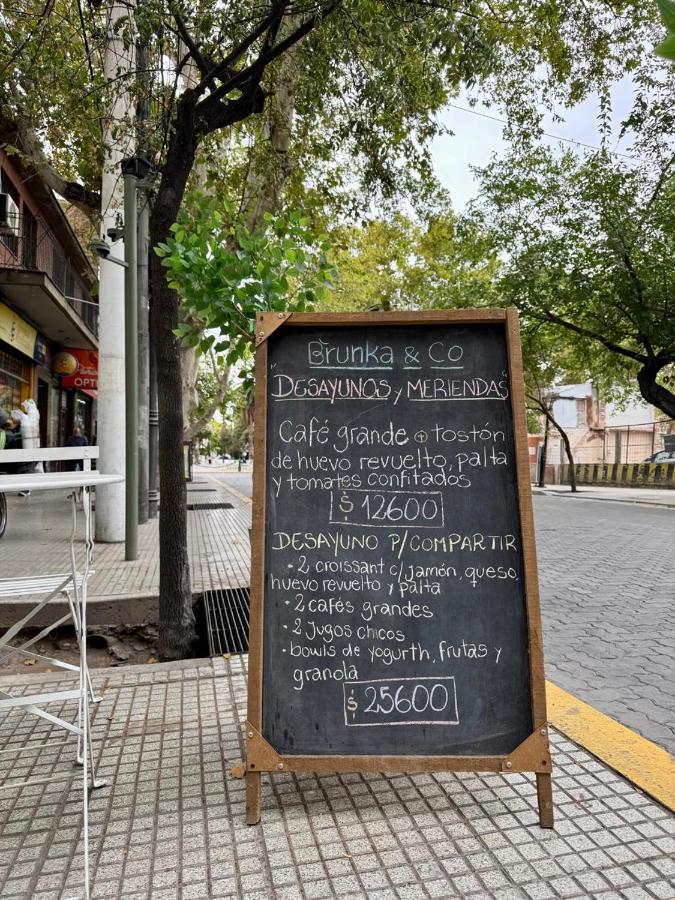 Brunka & Co
"DESAYUNOS y MERIENDAS"
Café grande + tostón
de huevo revuelto, palta
y tomates confitados
$12600
DESAYUNO P/COMPARTIR
• 2 croissant c/jamón, queso,
huevo revuelto y palta
• 2 cafés grandes
• 2 Jugos chicos
• bowls de yogurth, frutas y
granola
$25600
OPT